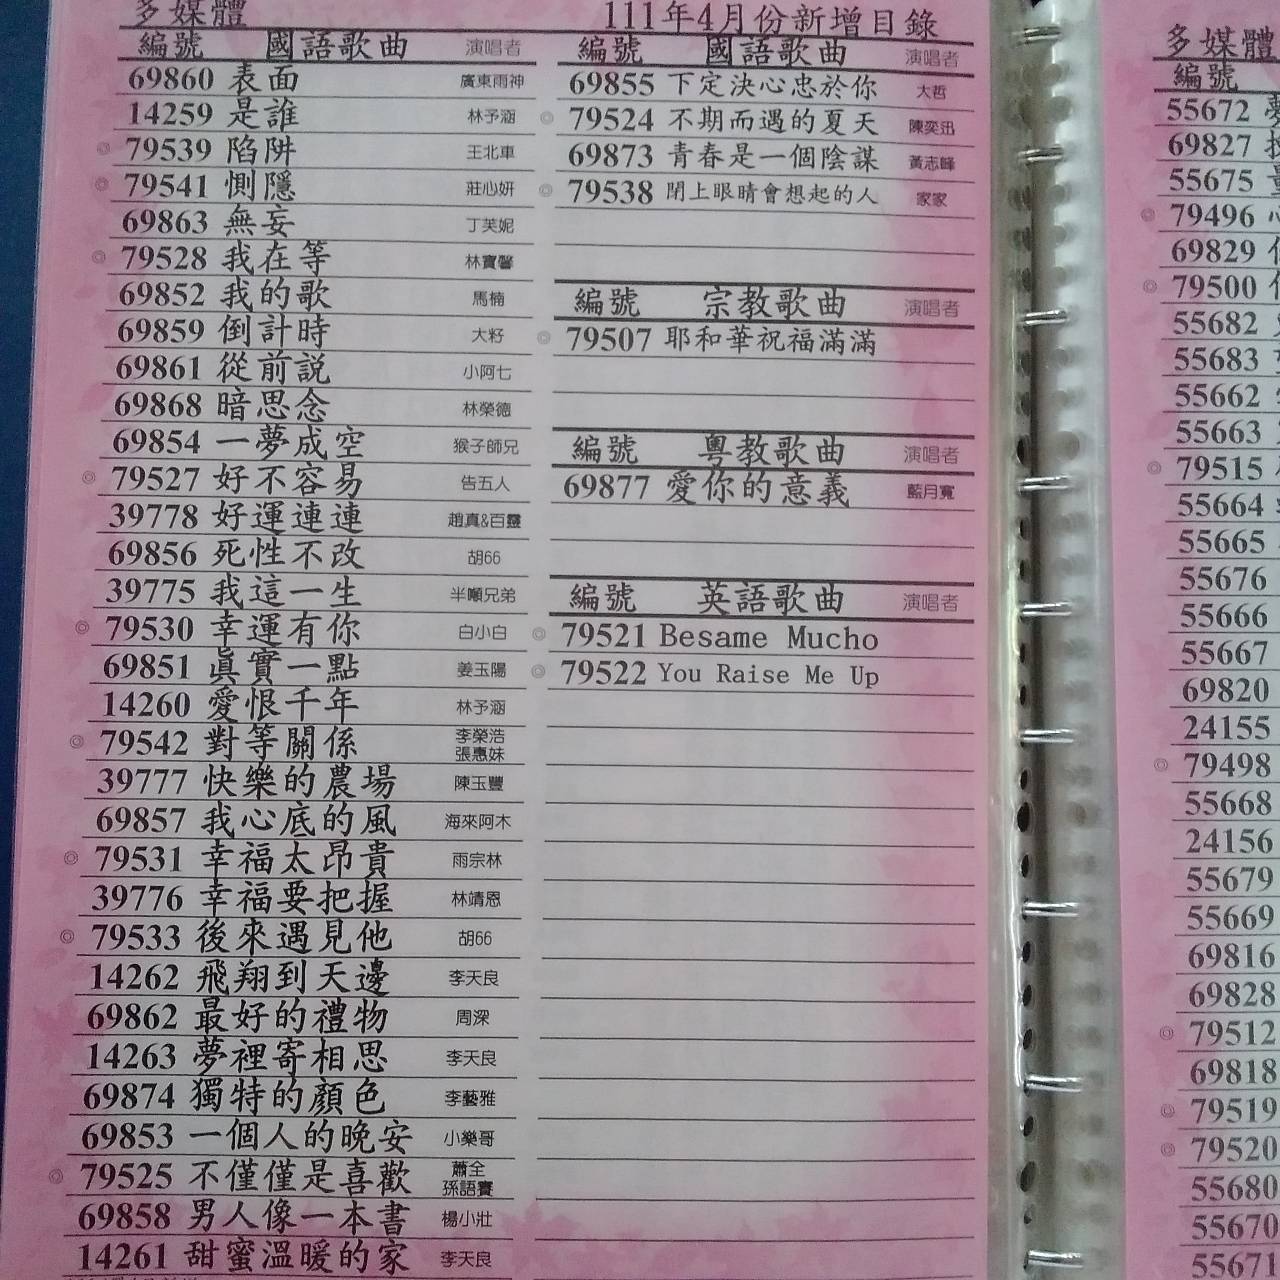 多媒體
111年4月份新增目錄
編號 國語歌曲 演唱者
69860 表面 廣東雨神
14259 是誰 林予涵
◎ 79539 陷阱 王北車
◎ 79541 惻隱 莊心妍
69863 無妄 丁芙妮
◎ 79528 我在等 林寶馨
69852 我的歌 馬楠
69859 倒計時 大籽
69861 從前説 小阿七
69868 暗思念 林榮德
69854 一夢成空 猴子師兄
◎ 79527 好不容易 告五人
39778 好運連連 趙真&百靈
69856 死性不改 胡66
39775 我這一生 半噸兄弟
◎ 79530 幸運有你 白小白
69851 眞實一點 姜玉陽
14260 愛恨千年 林予涵
◎ 79542 對等關係 李榮浩 張惠妹
39777 快樂的農場 陳玉豐
69857 我心底的風 海來阿木
◎ 79531 幸福太昂貴 雨宗林
39776 幸福要把握 林靖恩
◎ 79533 後來遇見他 胡66
14262 飛翔到天邊 李天良
69862 最好的禮物 周深
14263 夢裡寄相思 李天良
69874 獨特的顏色 李藝雅
69853 一個人的晚安 小樂哥
◎ 79525 不僅僅是喜歡 蕭全 孫語賽
69858 男人像一本書 楊小壯
14261 甜蜜溫暖的家 李天良
編號 國語歌曲 演唱者
69855 下定決心忠於你 大哲
◎ 79524 不期而遇的夏天 陳奕迅
69873 青春是一個陰謀 黃志峰
◎ 79538 閉上眼睛會想起的人 家家
編號 宗教歌曲 演唱者
◎ 79507 耶和華祝福滿滿
編號 粵教歌曲 演唱者
69877 愛你的意義 藍月寬
編號 英語歌曲 演唱者
◎ 79521 Besame Mucho
◎ 79522 You Raise Me Up
多媒體
編號
55672
69827
55675
◎ 79496
69829
◎ 79500
55682
55683
55662
55663
◎ 79515
55664
55665
55676
55666
55667
69820
24155
◎ 79498
55668
24156
55679
55669
69816
69828
◎ 79512
69818
◎ 79519
◎ 79520
55680
55670
55671